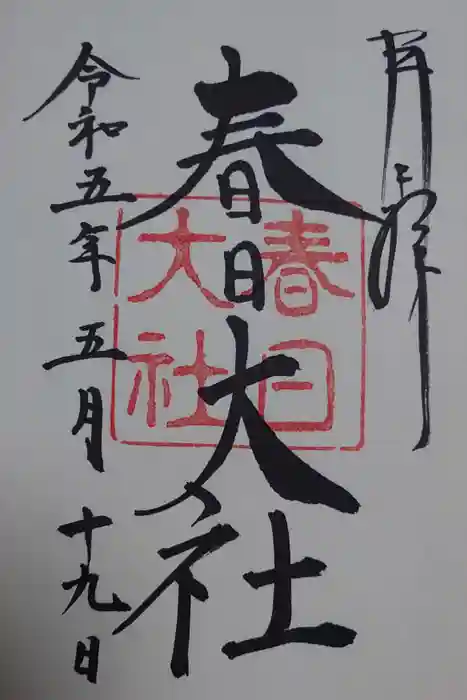 奉拝
春日大社
春日大社
令和五年五月十九日